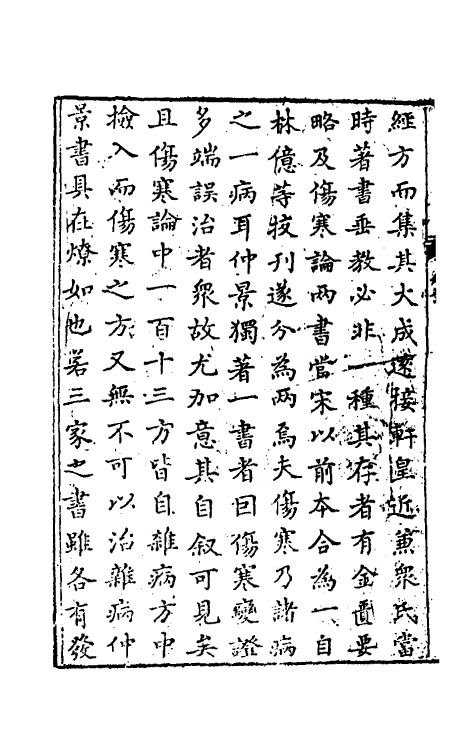 經方而集其大成遂接軒皇近兼衆氏當
時著書垂教必非一種其存者有金匱要
略及傷寒論兩書當宋以前本合為一自
林億等校刊遂分為兩焉夫傷寒乃諸病
之一病耳仲景獨著一書者因傷寒變證
多端誤治者衆故尤加意其自叙可見矣
且傷寒論中一百十三方皆自雜病方中
檢入而傷寒之方又無不可以治雜病仲
景書具在燎如也若三家之書雖各有發